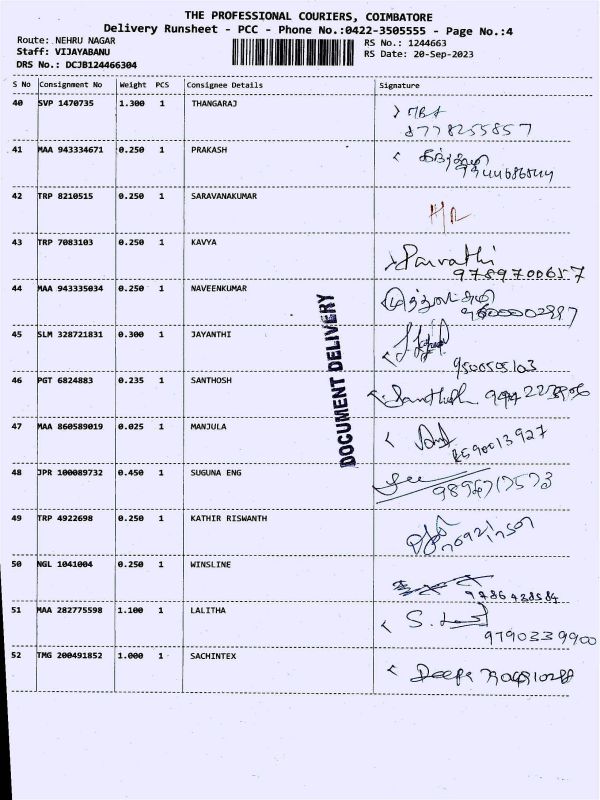 THE PROFESSIONAL COURIERS, COIMBATORE
Delivery Runsheet - PCC - Phone No.:0422-3505555 - Page No.:4
Route: NEHRU NAGAR RS No.: 1244663
Staff: VIJAYABANU RS Date: 20-Sep-2023
DRS No.: DCJB124466304
S No Consignment No Weight PCS Consignee Details Signature
40 SVP 1470735 1.300 1 THANGARAJ
8778255857
41 MAA 943334671 0.250 1 PRAKASH
42 TRP 8210515 0.250 1 SARAVANAKUMAR
43 TRP 7083103 0.250 1 KAVYA
Parvathi
9789700657
44 MAA 943335034 0.250 1 NAVEENKUMAR
45 SLM 328721831 0.300 1 JAYANTHI
9500505103
46 PGT 6824883 0.235 1 SANTHOSH Santhosh
47 MAA 860589019 0.025 1 MANJULA
8590013927
48 JPR 100089732 0.450 1 SUGUNA ENG
49 TRP 4922698 0.250 1 KATHIR RISWANTH
50 NGL 1041004 0.250 1 WINSLINE
9786438584
51 MAA 282775598 1.100 1 LALITHA
9790339900
52 TMG 200491852 1.000 1 SACHINTEX Deepa
DOCUMENT DELIVERY